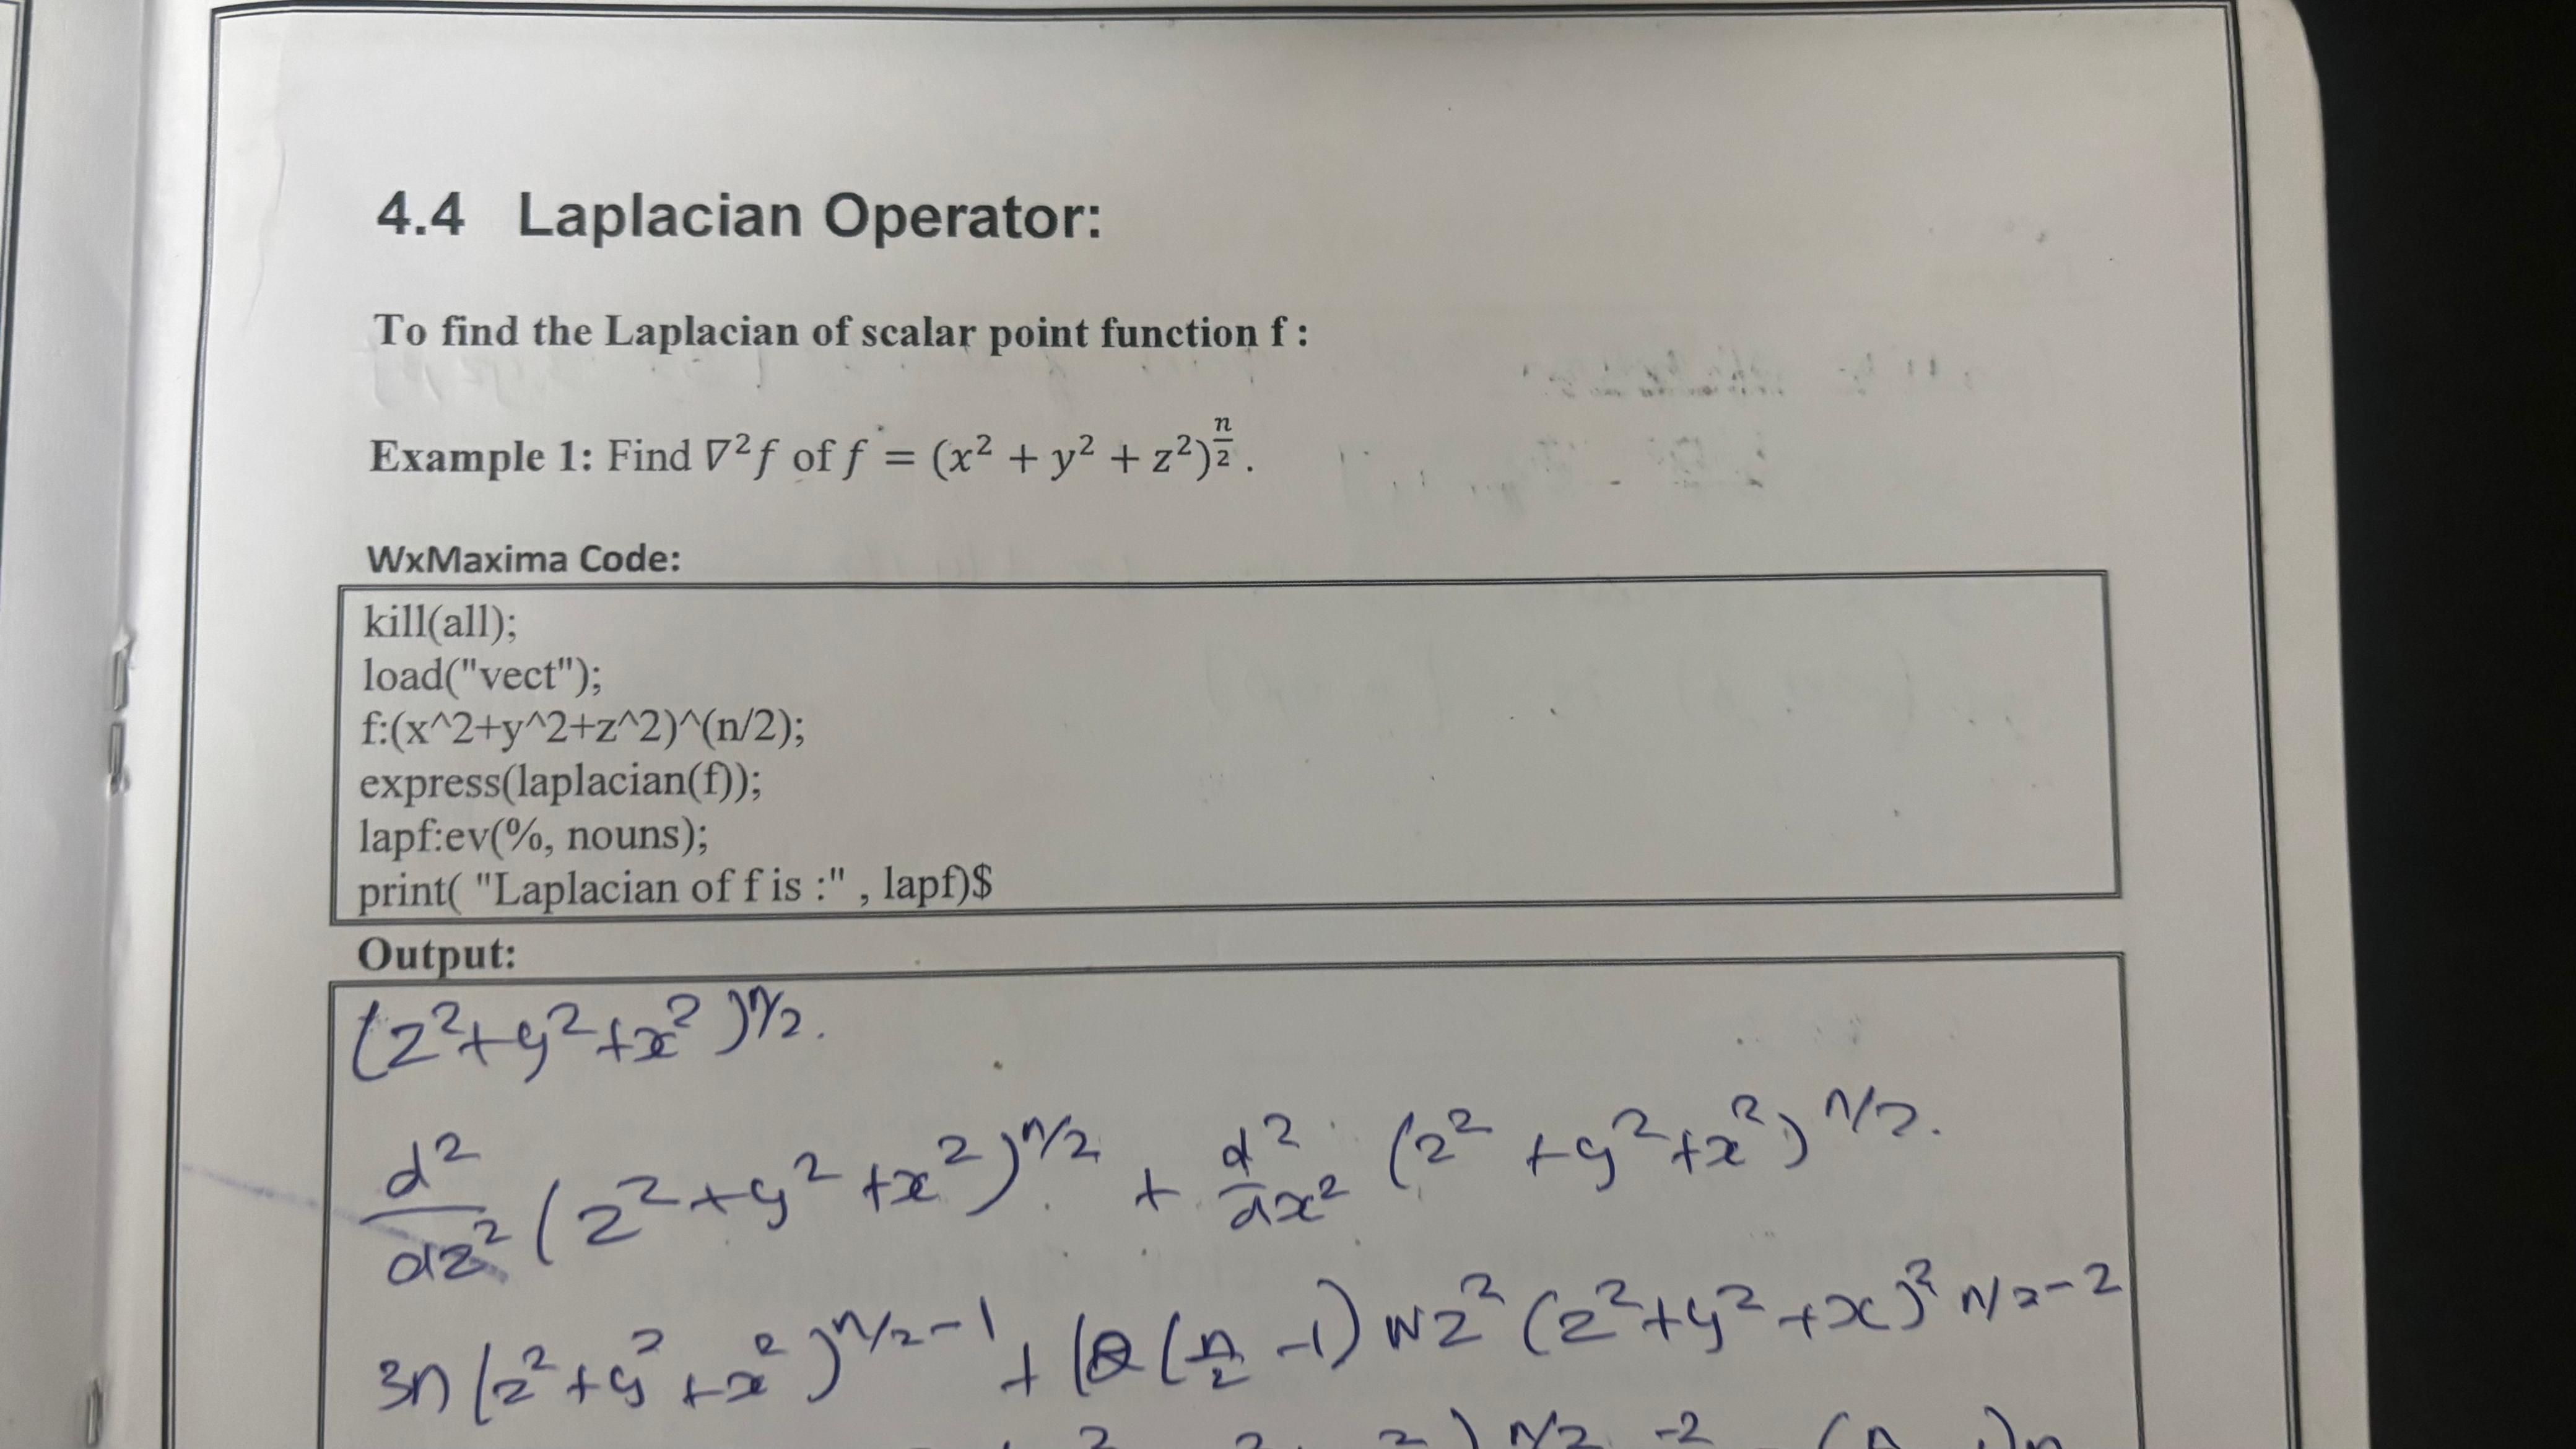 4.4 Laplacian Operator:
To find the Laplacian of scalar point function f :
Example 1: Find ∇²f of f = (x² + y² + z²)^(n/2) .
WxMaxima Code:
kill(all);
load("vect");
f:(x^2+y^2+z^2)^(n/2);
express(laplacian(f));
lapf:ev(%, nouns);
print( "Laplacian of f is :" , lapf)$
Output:
(z²+y²+x²)^n/2.
d²/dz² (z²+y²+x²)^n/2 + d²/dx² (z²+y²+x²)^n/2.
3n(z²+y²+x²)^n/2-1 + (2(n/2 -1) nz² (z²+y²+x)² n/2-2